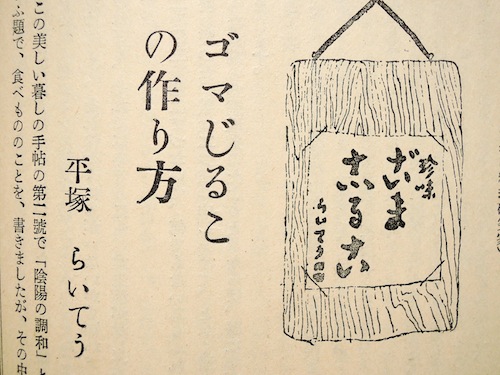 珍味
ゴマじるこ
の作り方
平塚 らいてう
この美しい暮しの手帖の第二號で「陰陽の調和」と
ふ題で、食べもののことを、書きましたが、その中